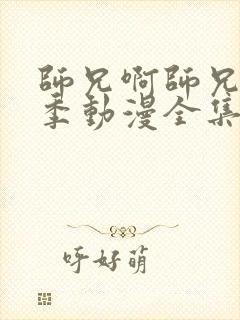 師兄啊師兄
季動漫全集
呀好萌